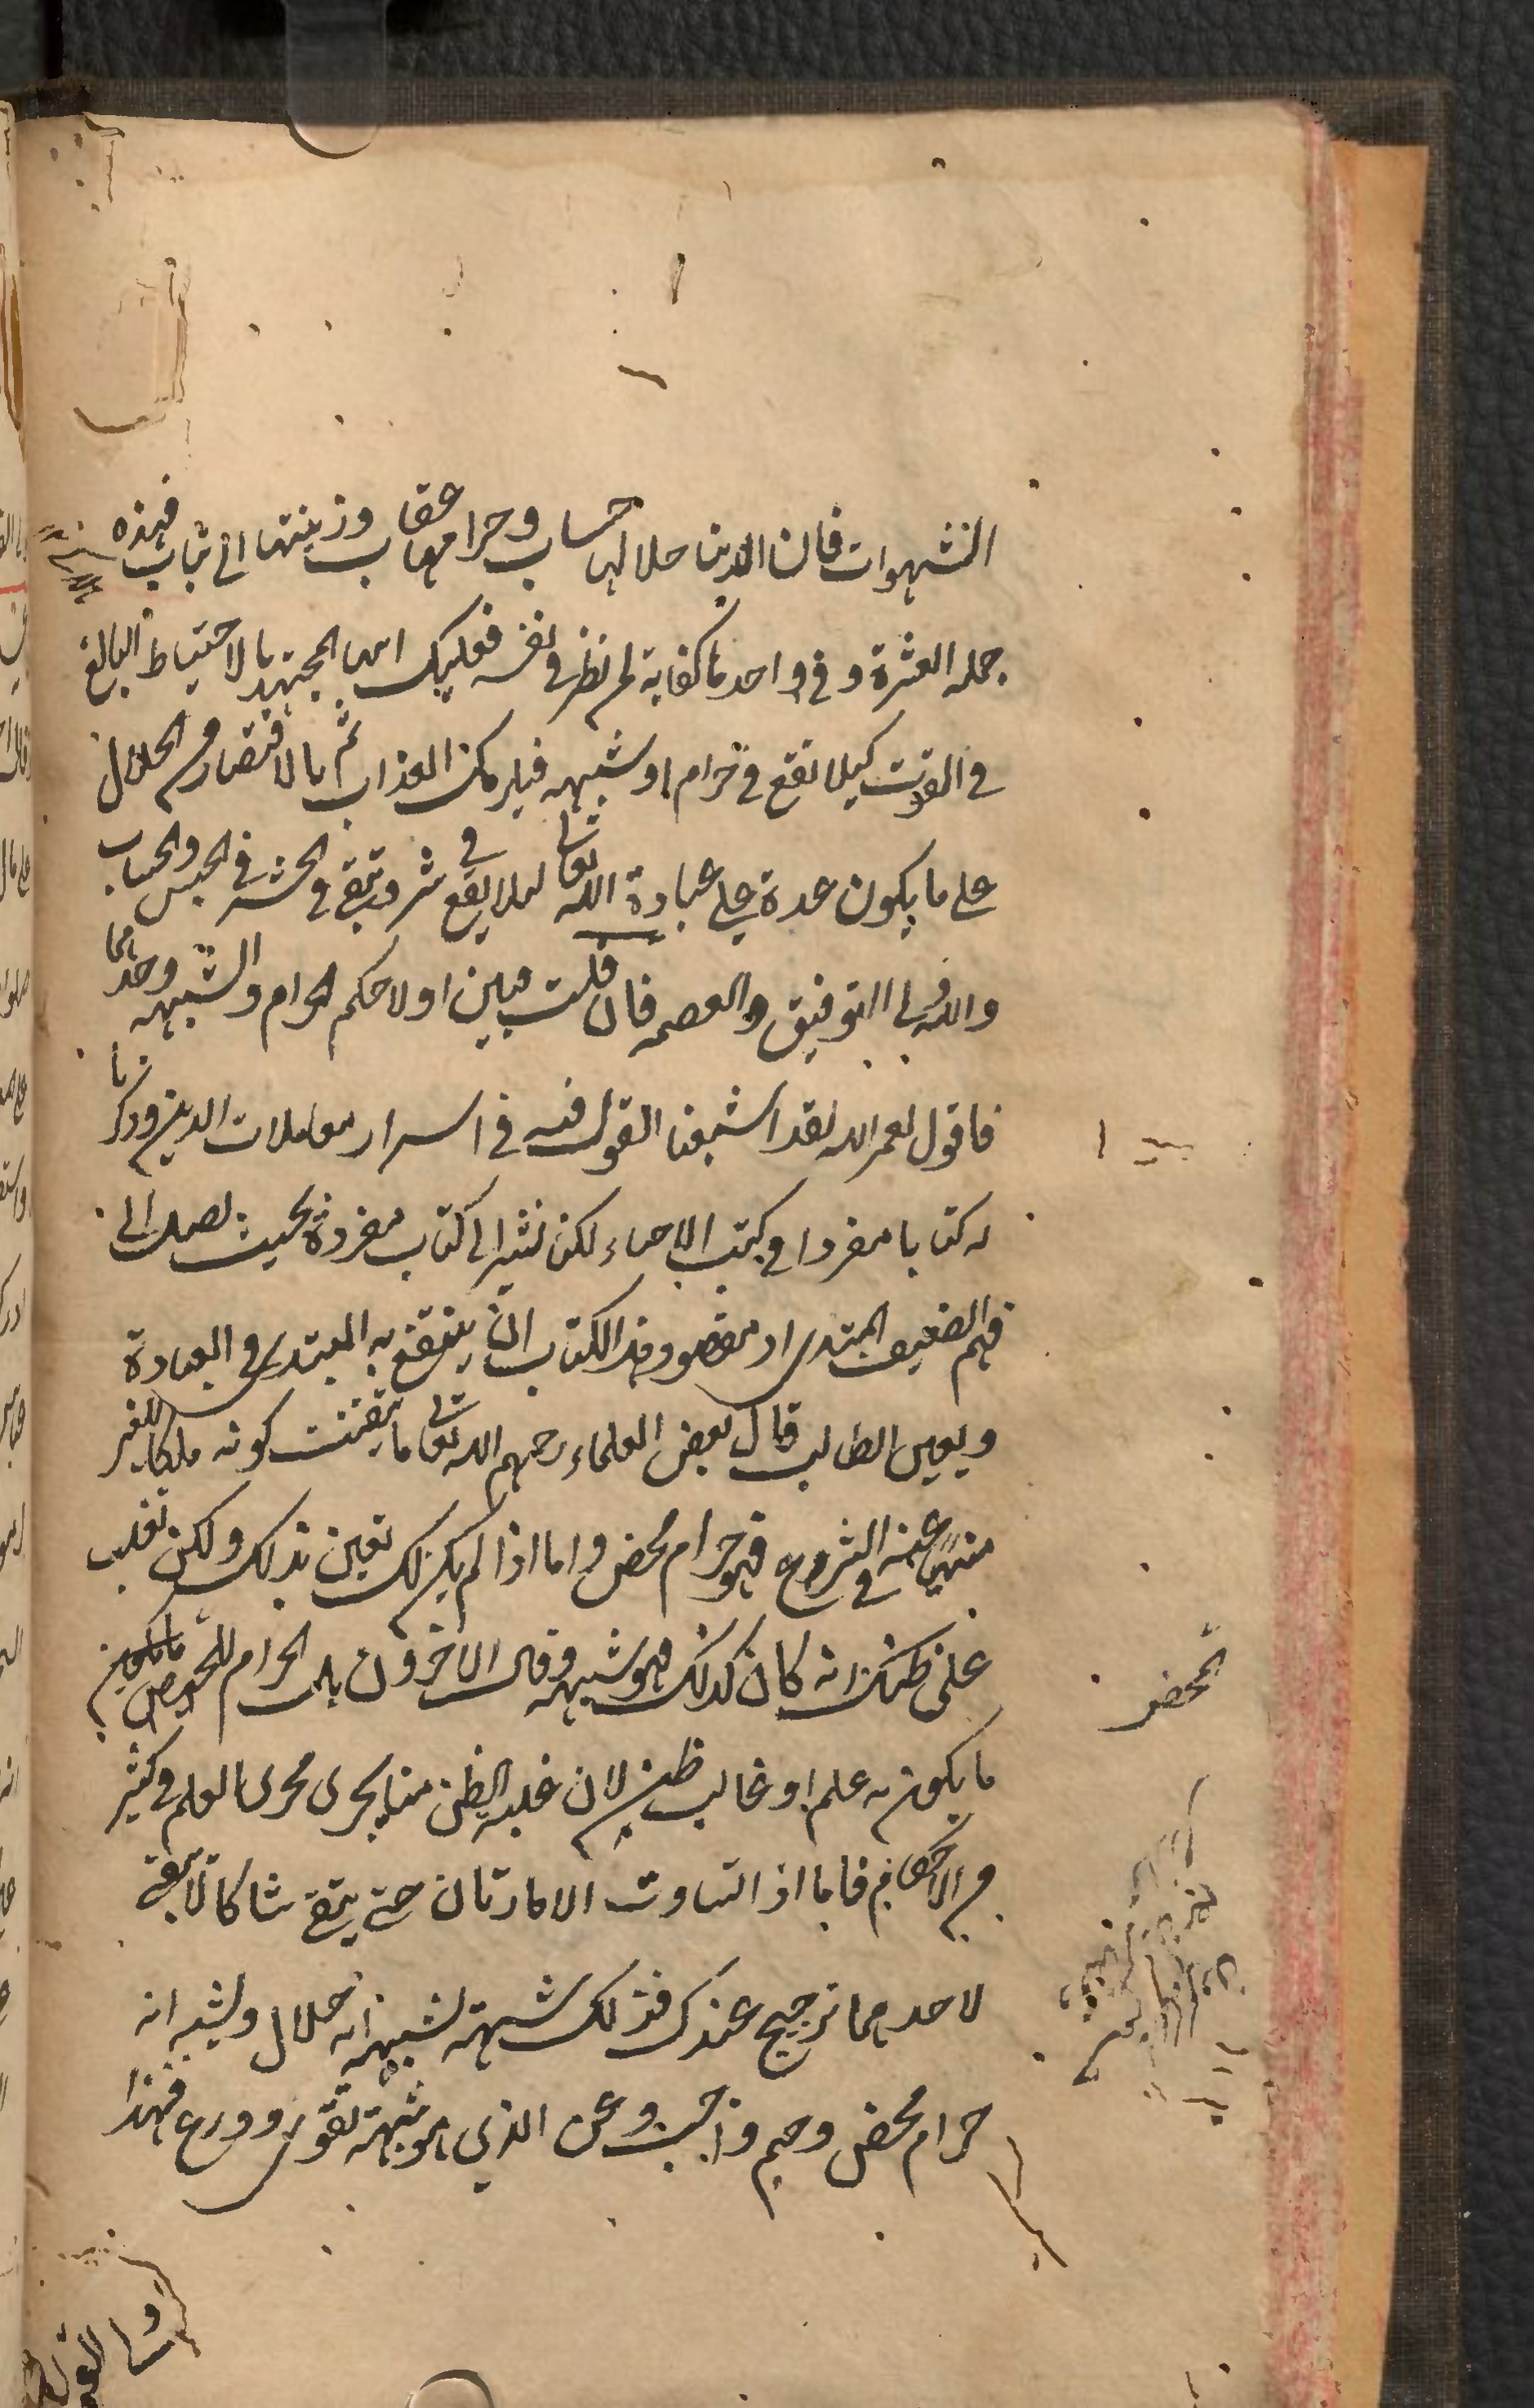 الشهوات فان الدنيا حلالها حساب وحرامها عقاب وزينتها الى تباب فهذه
جملة العشرة وفي واحد ما كفاية لمن نظر في نفسه فعليك ايها المجتهد بالاحتياط البالغ
في القوت كيلا تقع في حرام او شبهه فيلزمك العذاب ثم بالاقتصار من الحلال
على ما يكون عدة على عبادة الله تعالى لئلا يقع في شر وتبقى في الحشر في الحبس والحساب
والله ولي التوفيق والعصمه فان قلت فبين اولا حكم الحرام والشبهه وحدهما
فاقول لعمر الله لقد اشبعنا القول فيه في اسرار معاملات الدين وذكرنا
له كتابا مفردا في كتب الاحياء لكن نشير الى كتاب مفردة بحيث تصل الى
فهم الضعيف المبتدى اذ مقصود هذا الكتاب ان ينتفع به المبتدى في العبادة
ويعين الطالب قال بعض العلماء رحمهم الله تعالى ما تيقنت كونه ملكا للغير
منهيا عنه في الشرع فهو حرام محض واما اذا لم يكن لك تعين بذلك ولكن تغلب
على ظنك انه كان كذلك فهو شبهه وقال الاخرون بل الحرام المحض
ما يكون به علم او غالب ظن لان غلبه الظن منا يجرى مجرى العلم في كثير
من الاحكام فاما اذا تساوت الامارتان حتى يبقى شاكا لا يبقى
لاحدهما ترجيح عندك فذلك شبهة تشبه انه حلال ويشبه انه
حرام محض وحيم واجب وعن الذي هو شبهة تقوى وورع فهذا
محض